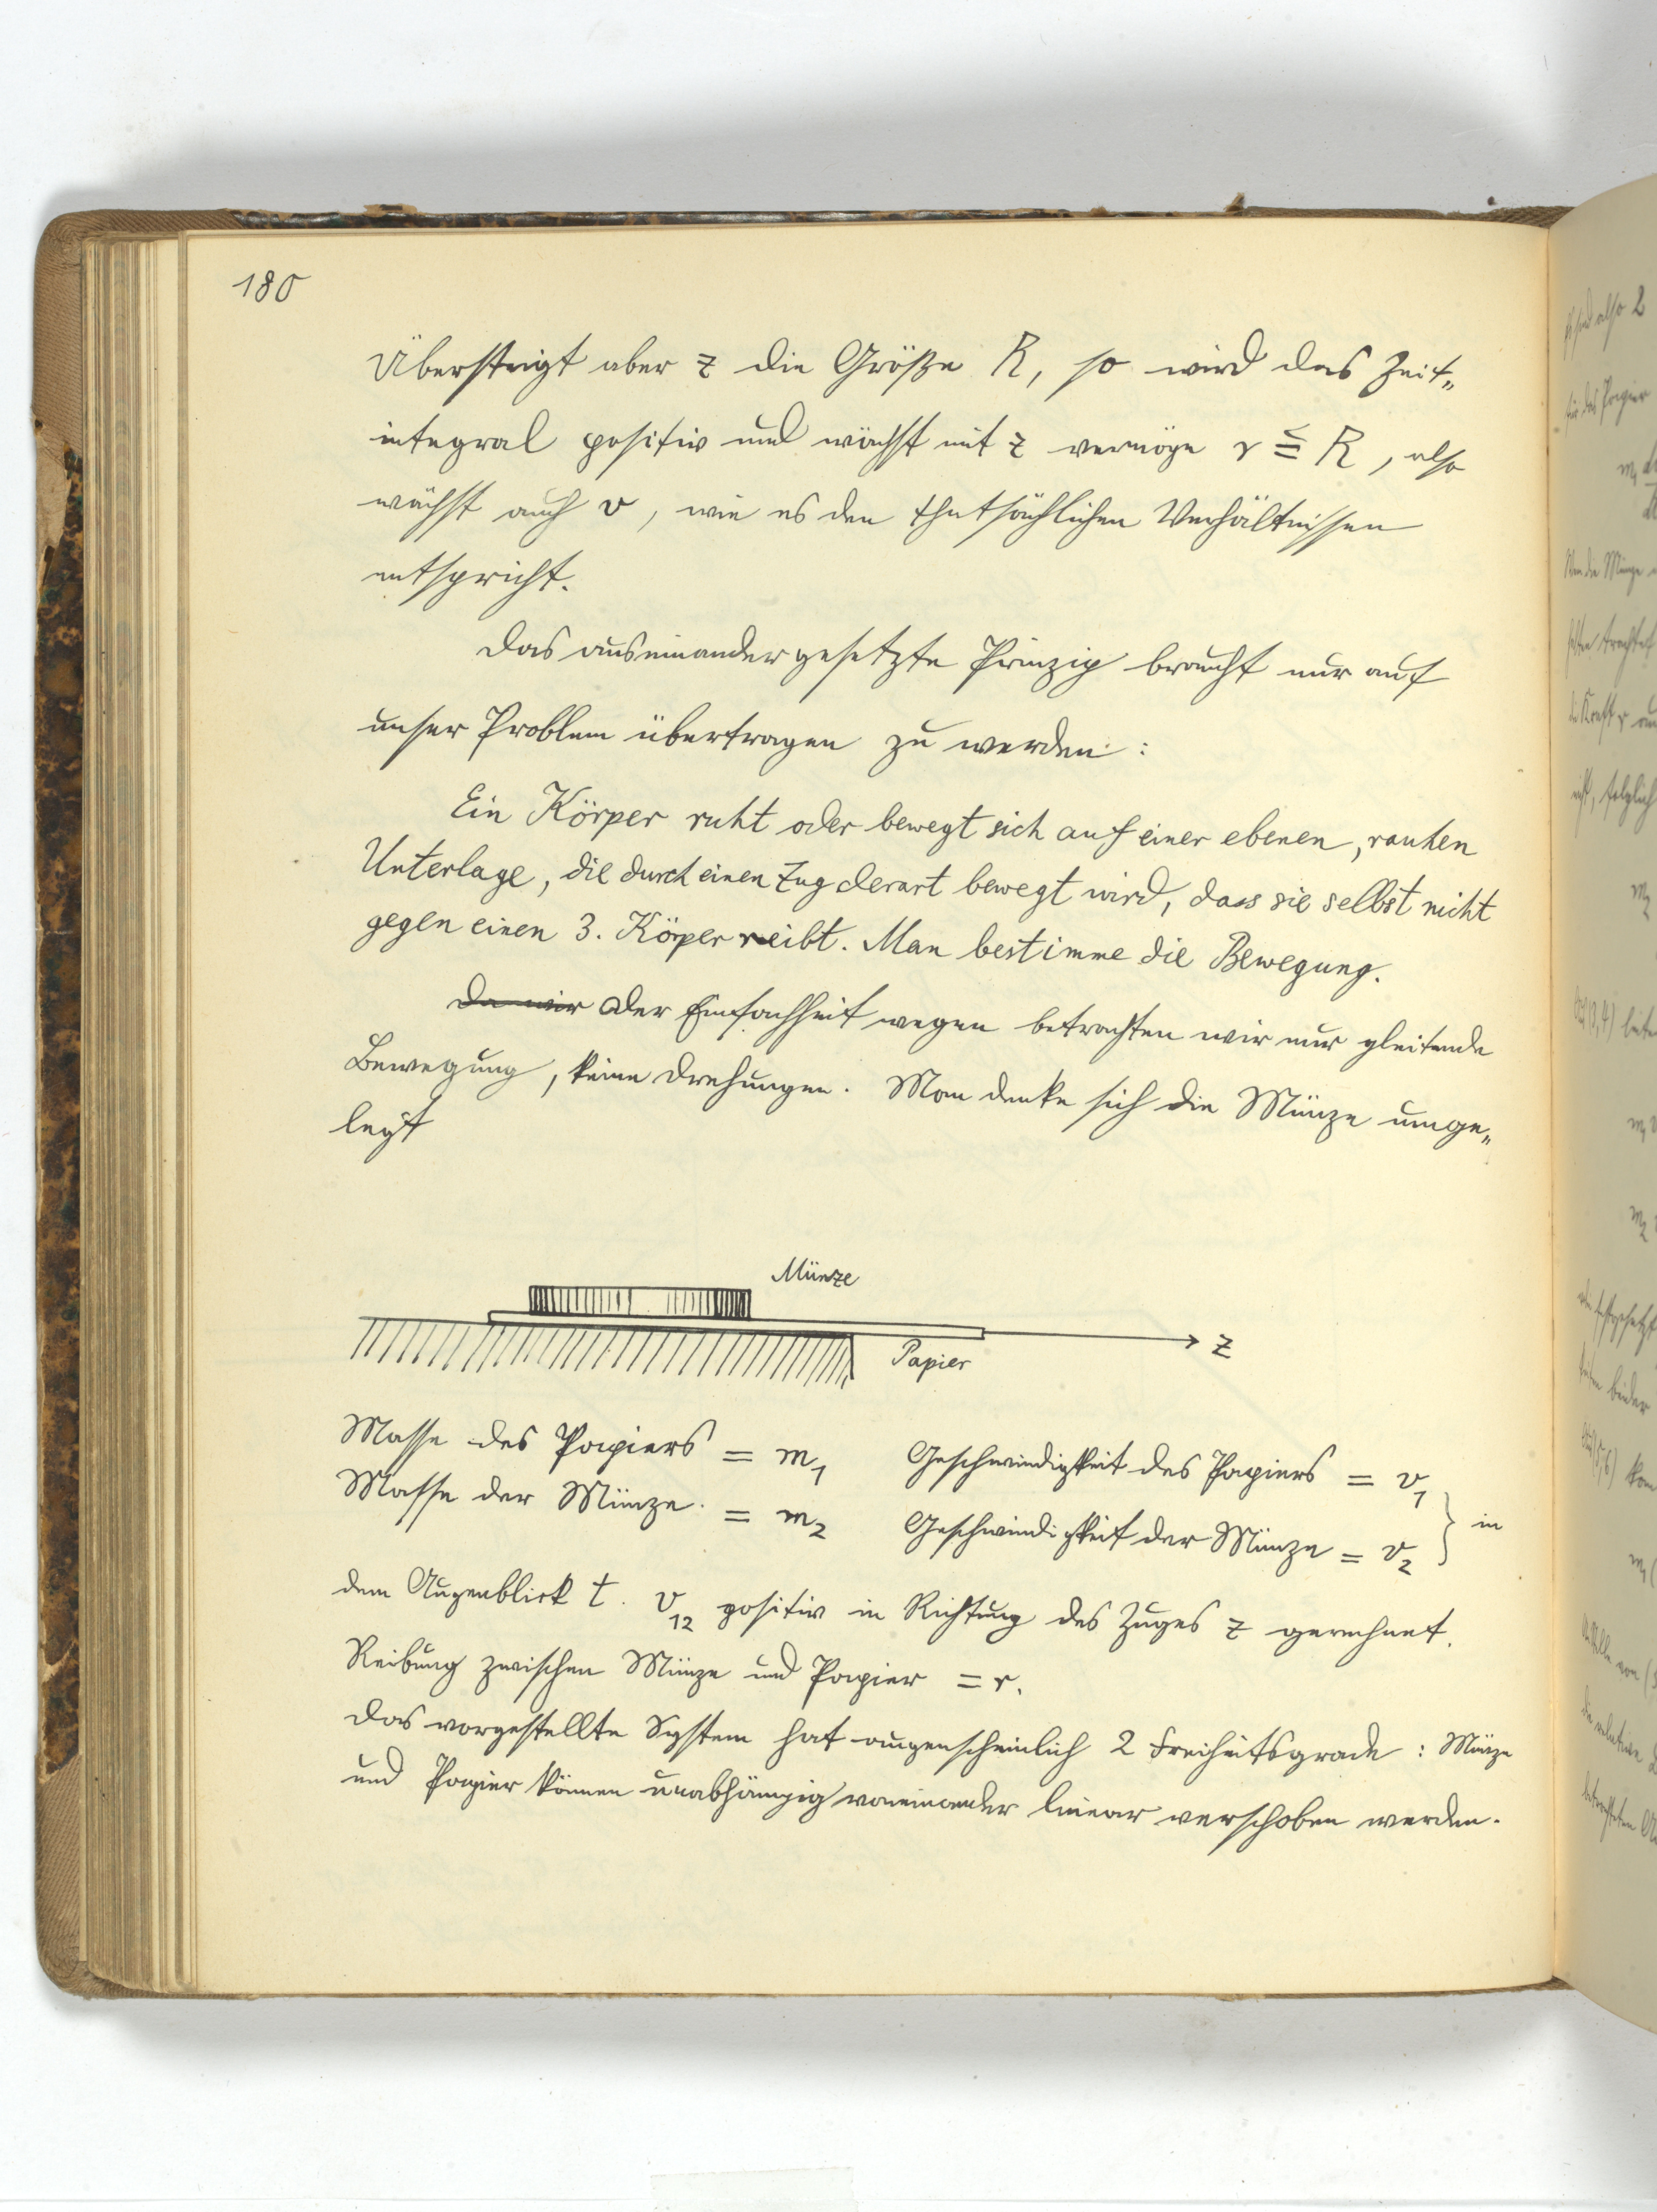 180
Übersteigt aber z die Größe R, so wird das Zeit„
integral positiv und wächst mit z vermöge r ≦ R, also
wächst auch v, wie es den thatsächlichen Verhältnissen
entspricht.
Das auseinandergesetzte Prinzip braucht nur auf
unser Problem übertragen zu werden:
Ein Körper ruht oder bewegt sich auf einer ebenen, rauhen
Unterlage, die durch einen Zug derart bewegt wird, dass sie selbst nicht
gegen einen 3. Körper reibt. Man bestimme die Bewegung.
Da wir Der Einfachheit wegen betrachten wir nur gleitende
Bewegung, keine Drehungen. Man denke sich die Münze umge„
legt
Münze
Papier
z
Masse des Papiers = m1 Geschwindigkeit des Papiers = v1
Masse der Münze = m2 Geschwindigkeit der Münze = v2 } in
dem Augenblick t. v12 positiv in Richtung des Zuges z gerechnet.
Reibung zwischen Münze und Papier = r.
Das vorgestellte System hat augenscheinlich 2 Freiheitsgrade: Münze
und Papier können unabhängig voneinander linear verschoben werden.